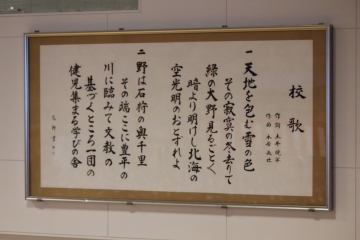 校歌
作詞 土井晩翠
一 天地を包む雪の色
その寂寞の冬去りて
緑の大野見るごとく
暗より明けし北海の
空光明のおとずれよ
二 野は石狩の輿千里
その端ここに豊平の
川に臨みて文教の
基づくところ一団の
健児集まる学びの舎